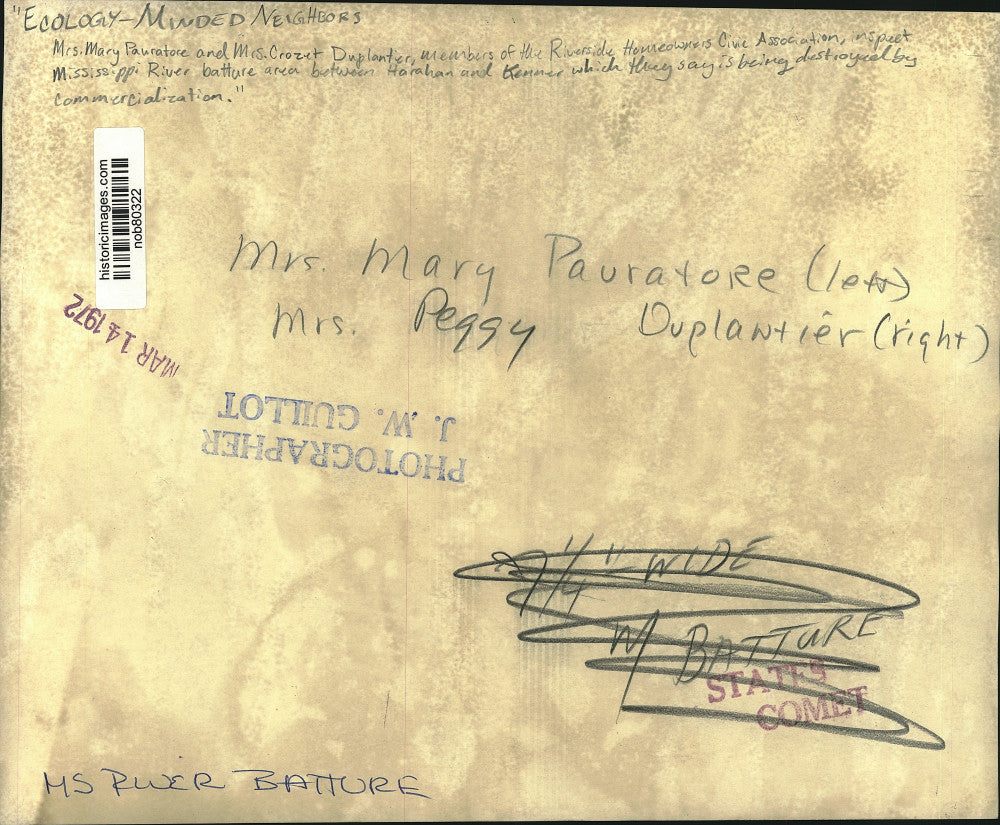 "Ecology-Minded Neighbors
Mrs. Mary Pauratore and Mrs. Crozet Duplantier, members of the Riverside Homeowners Civic Association, inspect
Mississippi River batture area between Harahan and Kenner which they say is being destroyed by
commercialization."
historicimages.com
nob80322
Mrs. Mary Pauratore (left)
Mrs. Peggy Duplantier (right)
MAR 14 1972
PHOTOGRAPHER
J. W. GUILLOT
1/4" WIDE
W/ BATTURE
STATES
COMET
MS RIVER BATTURE